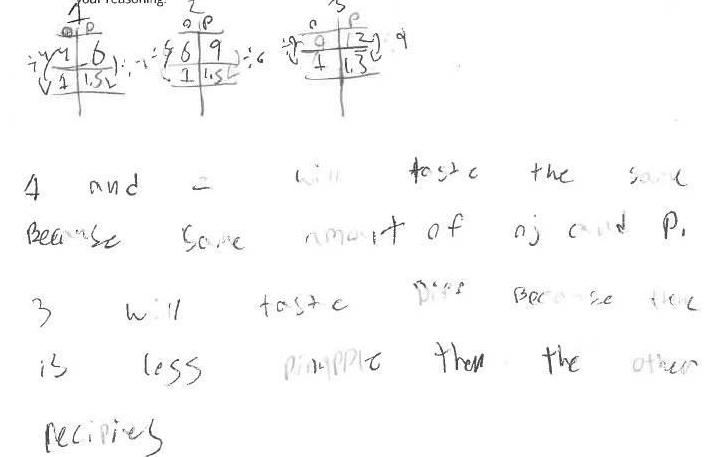 your reasoning.
1 2 3
O P O P O P
4 6 6 9 9 12
÷4 ÷4 ÷6 ÷6 ÷9 9
1 1.5 1 1.5 1 1.3
1 and 2 will taste the same
Because same amount of oj and P.
3 will taste Diff Because there
is less pinapple then the other
recipies